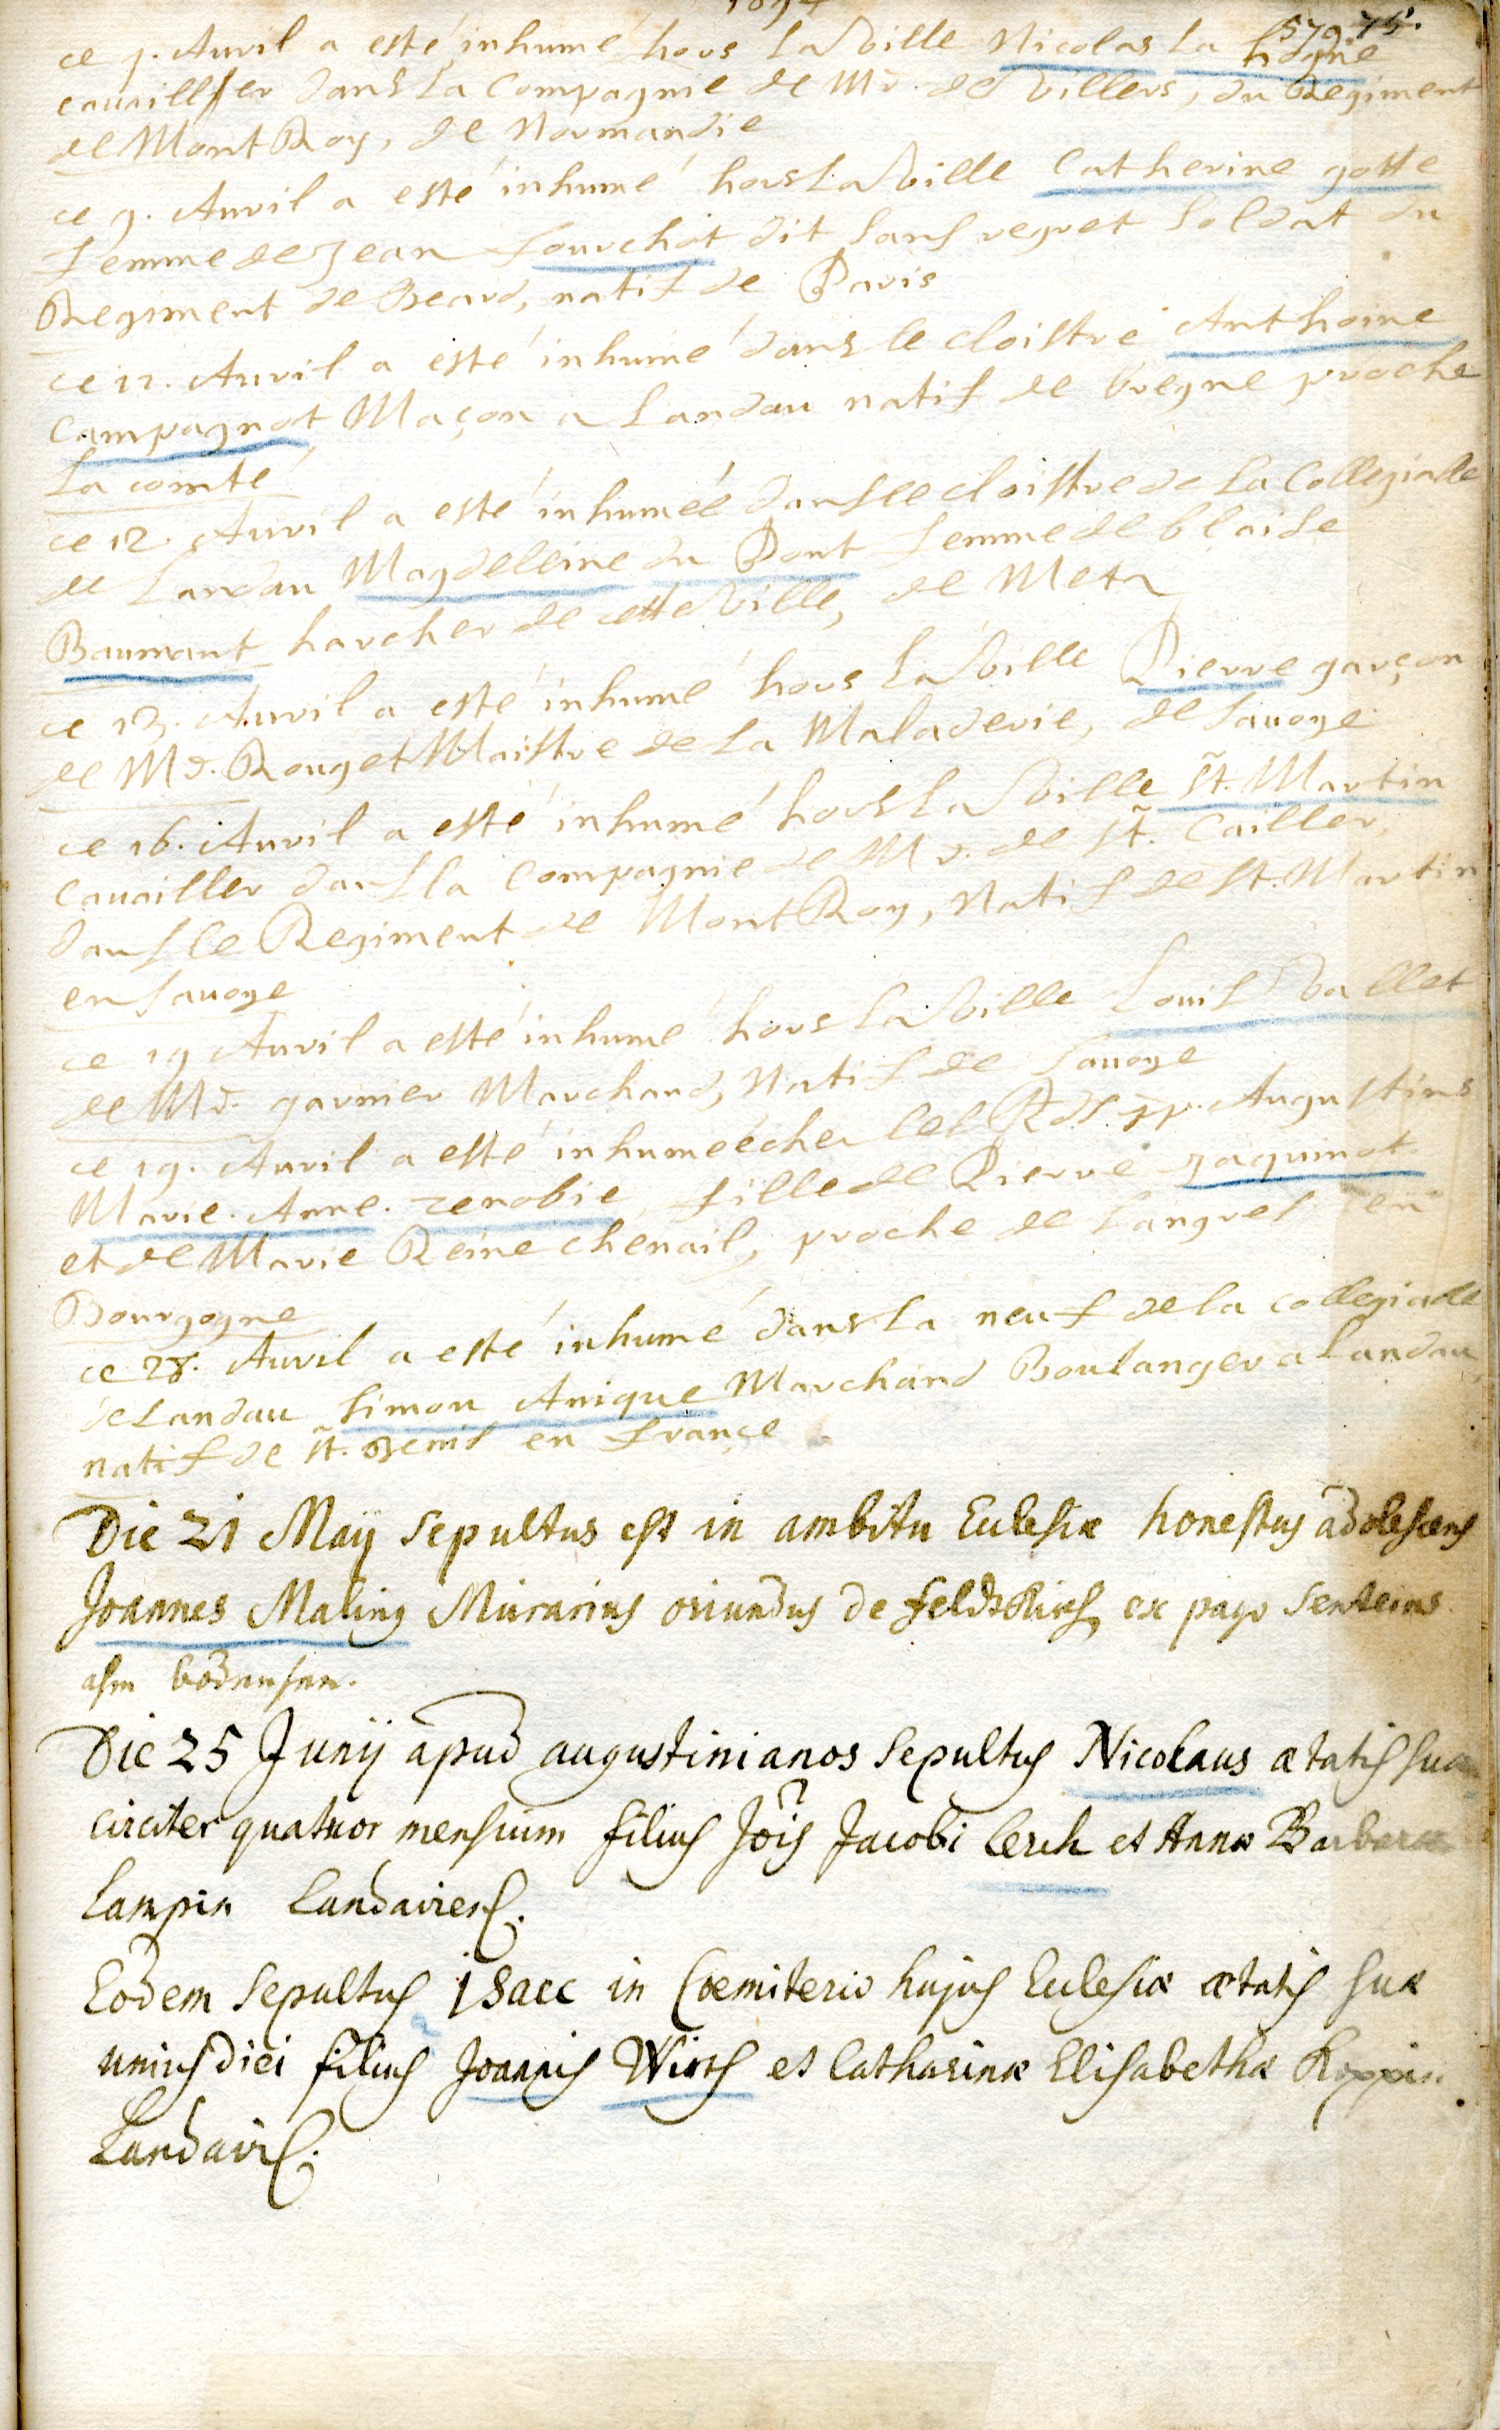 1694
579 75.
ce 7. Auvril a esté inhumé hors La Ville Nicolas La hogue
cauaillier dans La Compagnie de Mr. de Villers, du Regiment
de MontRoy, de Normandie
ce 9. Auvril a esté inhumé hors La Ville Catherine gotte
femme de Jean fourchot dit sans regret soldat du
Regiment de Beard, natif de Paris
ce 12. Auvril a esté inhumé dans le cloistre Anthoine
Campagnot Maçon a Landau natif de bregne proche
La comté
ce 12. Auvril a esté inhumée dans le cloistre de La Collegialle
de Landau Magdeleine du Pont femme de blaise
Baumant harcher de cette Ville, de Metz
ce 13. Auvril a esté inhumé hors La Ville Pierre garçon
de Mr. Rouget Maistre de La Maladerie, de Sauoye
ce 16. Auvril a esté inhumé hors La Ville St. Martin
Cauailler dans la Compagnie de Mr. de St. Cailler
dans le Regiment de MontRoy, Natif de St. Martin
en Sauoye
ce 19 Auvril a esté inhumé hors La Ville Louis Vallet
de Mr. garnier Marchand, Natif de Sauoye
ce 19. Auvril a esté inhumée chez les Rds. pp. Augustins
Marie. Anne. zenobie, fille de Pierre jaquinot
et de Marie Reine chenail, proche de Langres en
Bourgogne
ce 28. Auvril a esté inhumé dans La neuf de la collegialle
de Landau Simon Anique Marchand Boulanger a Landau
natif de St. Remis en françe
Die 21 Maÿ sepultus est in ambitu Eclesiæ honestus adolescens
Joannes Maling Murarius oriundus de feldtKirch ex pago
am bodensee.
Die 25 Junÿ apud augustinianos sepultus Nicolaus ætatis suæ
circiter quatuor mensium filius Jois Jacobi Lerch et Annæ Barbaræ
Lampin Landaviens.
Eodem sepultus Isaec in Cœmiterio hujus Eclesiæ ætatis suæ
unius diei filius Joannis Wirth et Catharinæ Elisabethæ Koppin
Landavis.